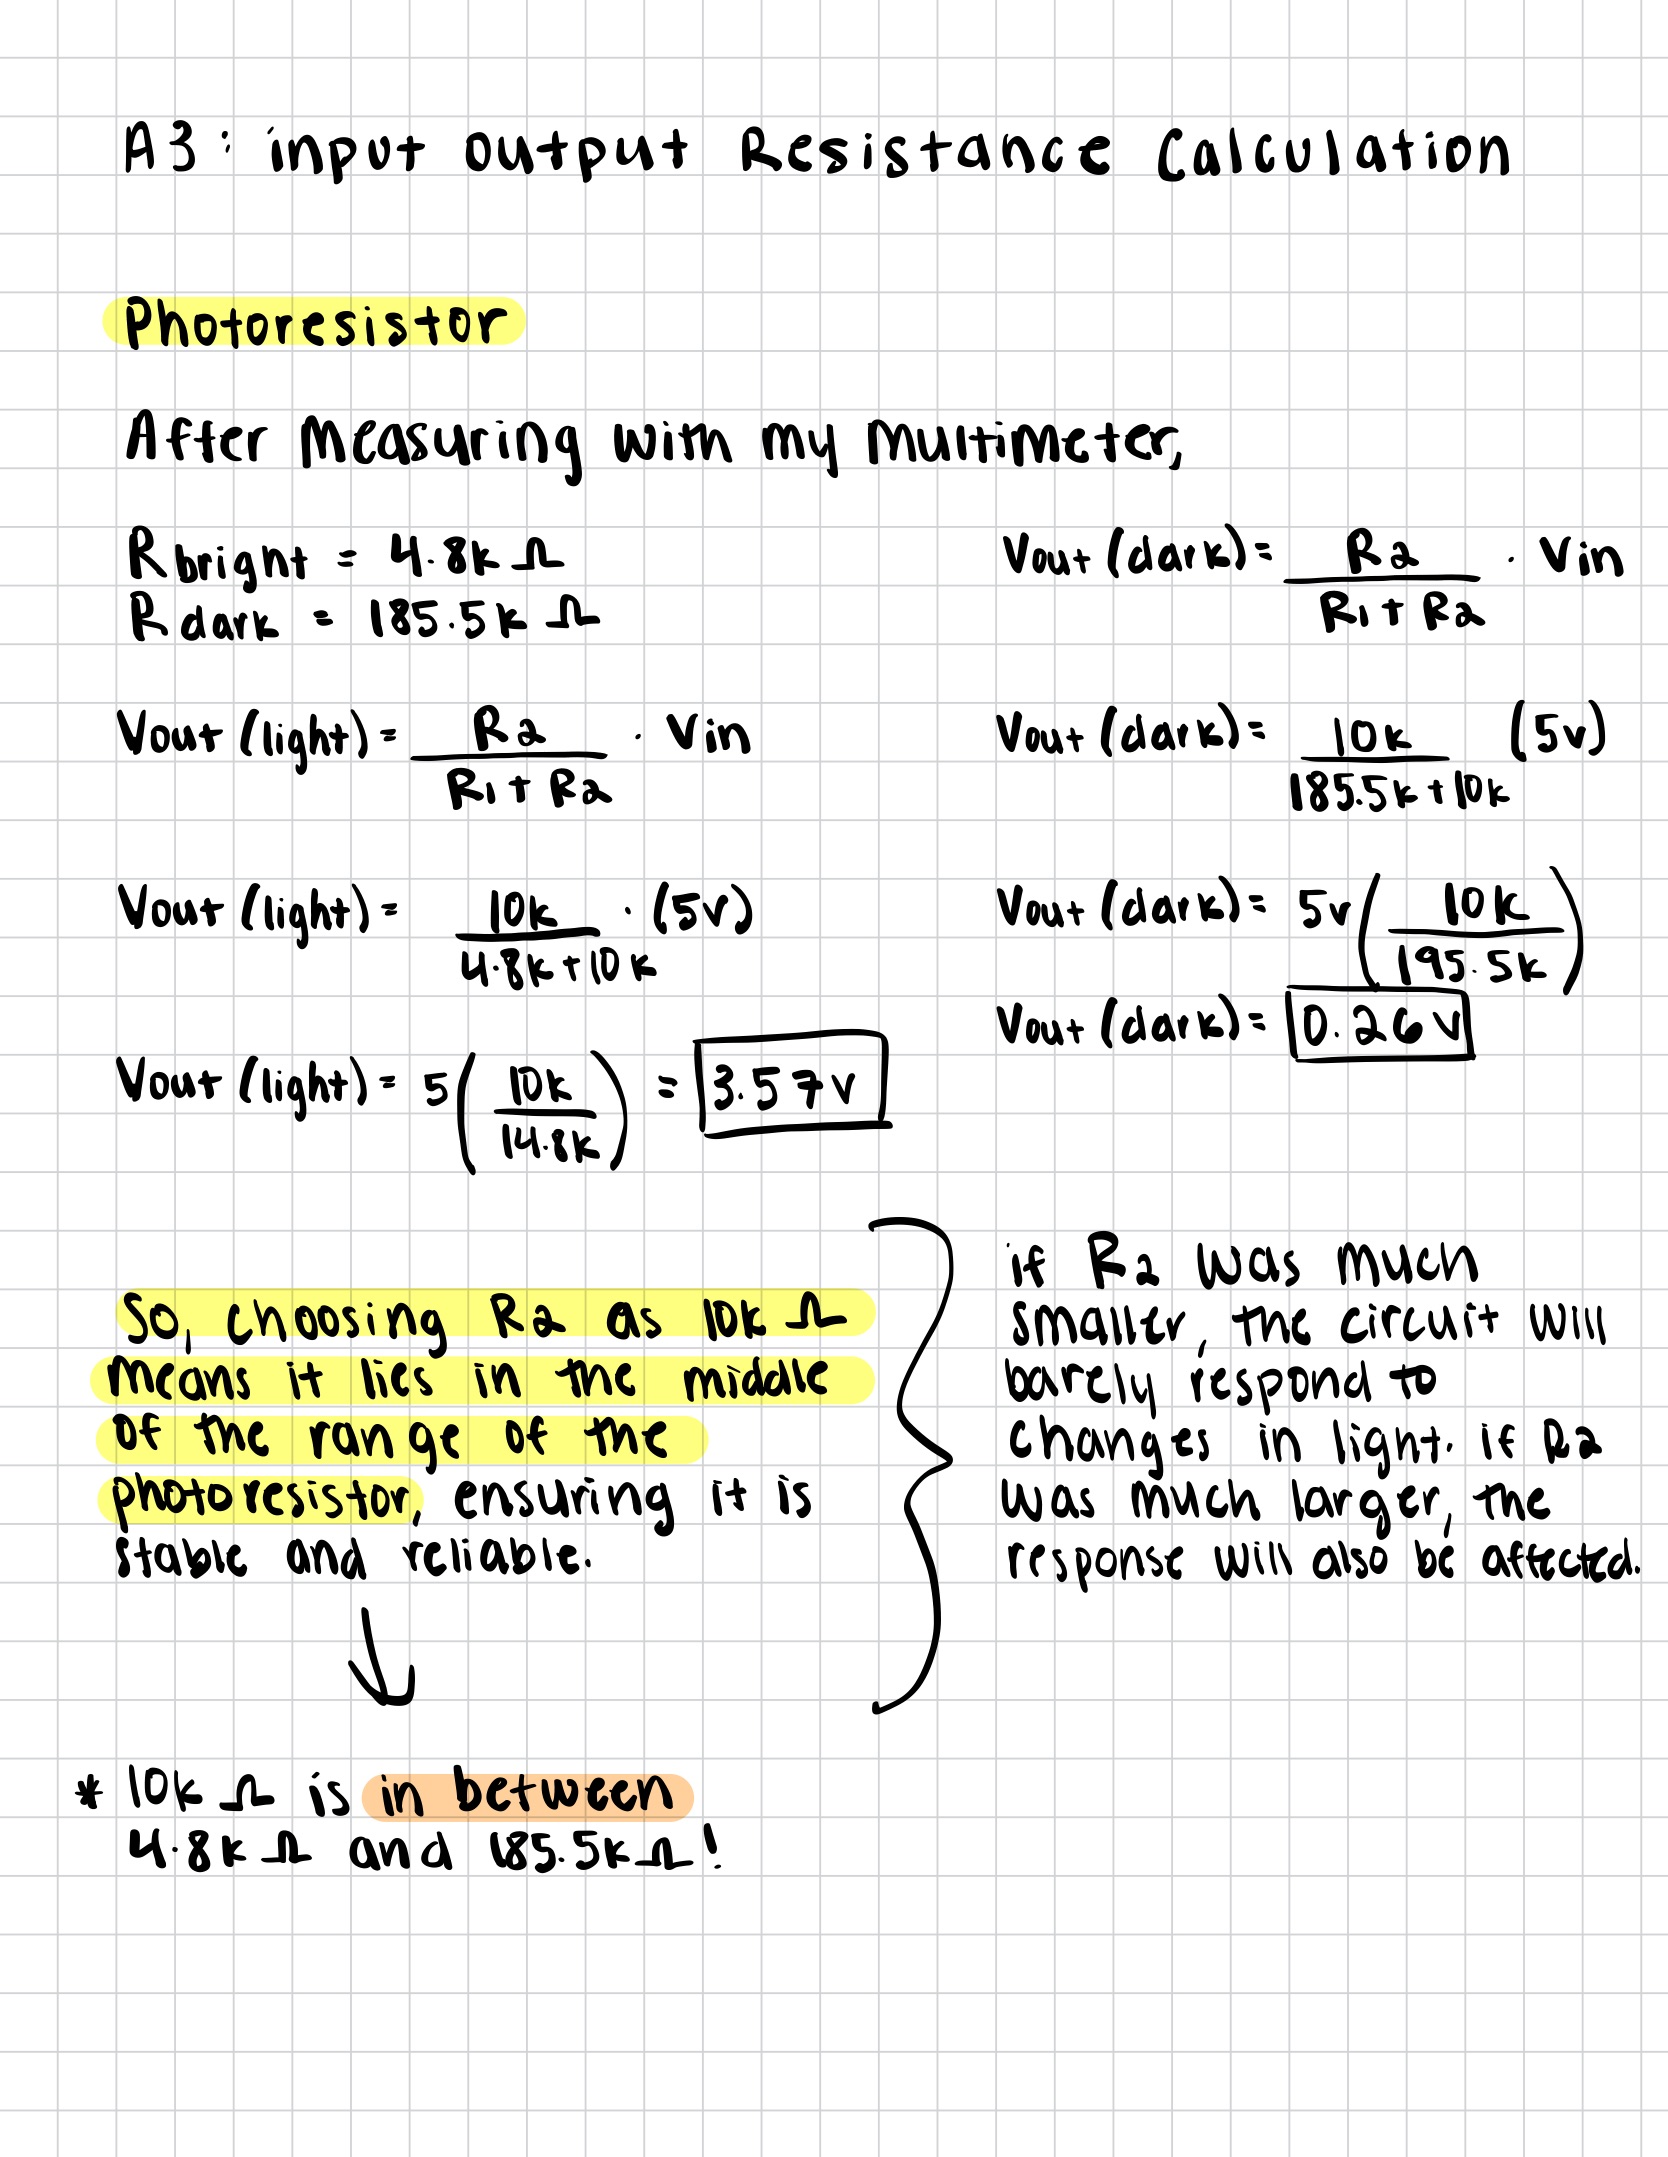 A3: input output Resistance Calculation
Photoresistor
After Measuring with my Multimeter,
Rbright = 4.8k Ω
Rdark = 185.5k Ω
Vout (light) = R2 / R1 + R2 · Vin
Vout (light) = 10k / 4.8k + 10k · (5v)
Vout (light) = 5 ( 10k / 14.8k ) = 3.57v
Vout (dark) = R2 / R1 + R2 · Vin
Vout (dark) = 10k / 185.5k + 10k (5v)
Vout (dark) = 5v ( 10k / 195.5k )
Vout (dark) = 0.26 v
So, choosing R2 as 10k Ω
means it lies in the middle
of the range of the
photoresistor, ensuring it is
stable and reliable.
if R2 was much
smaller, the circuit will
barely respond to
changes in light. if R2
was much larger, the
response will also be affected.
* 10k Ω is in between
4.8k Ω and 185.5k Ω!